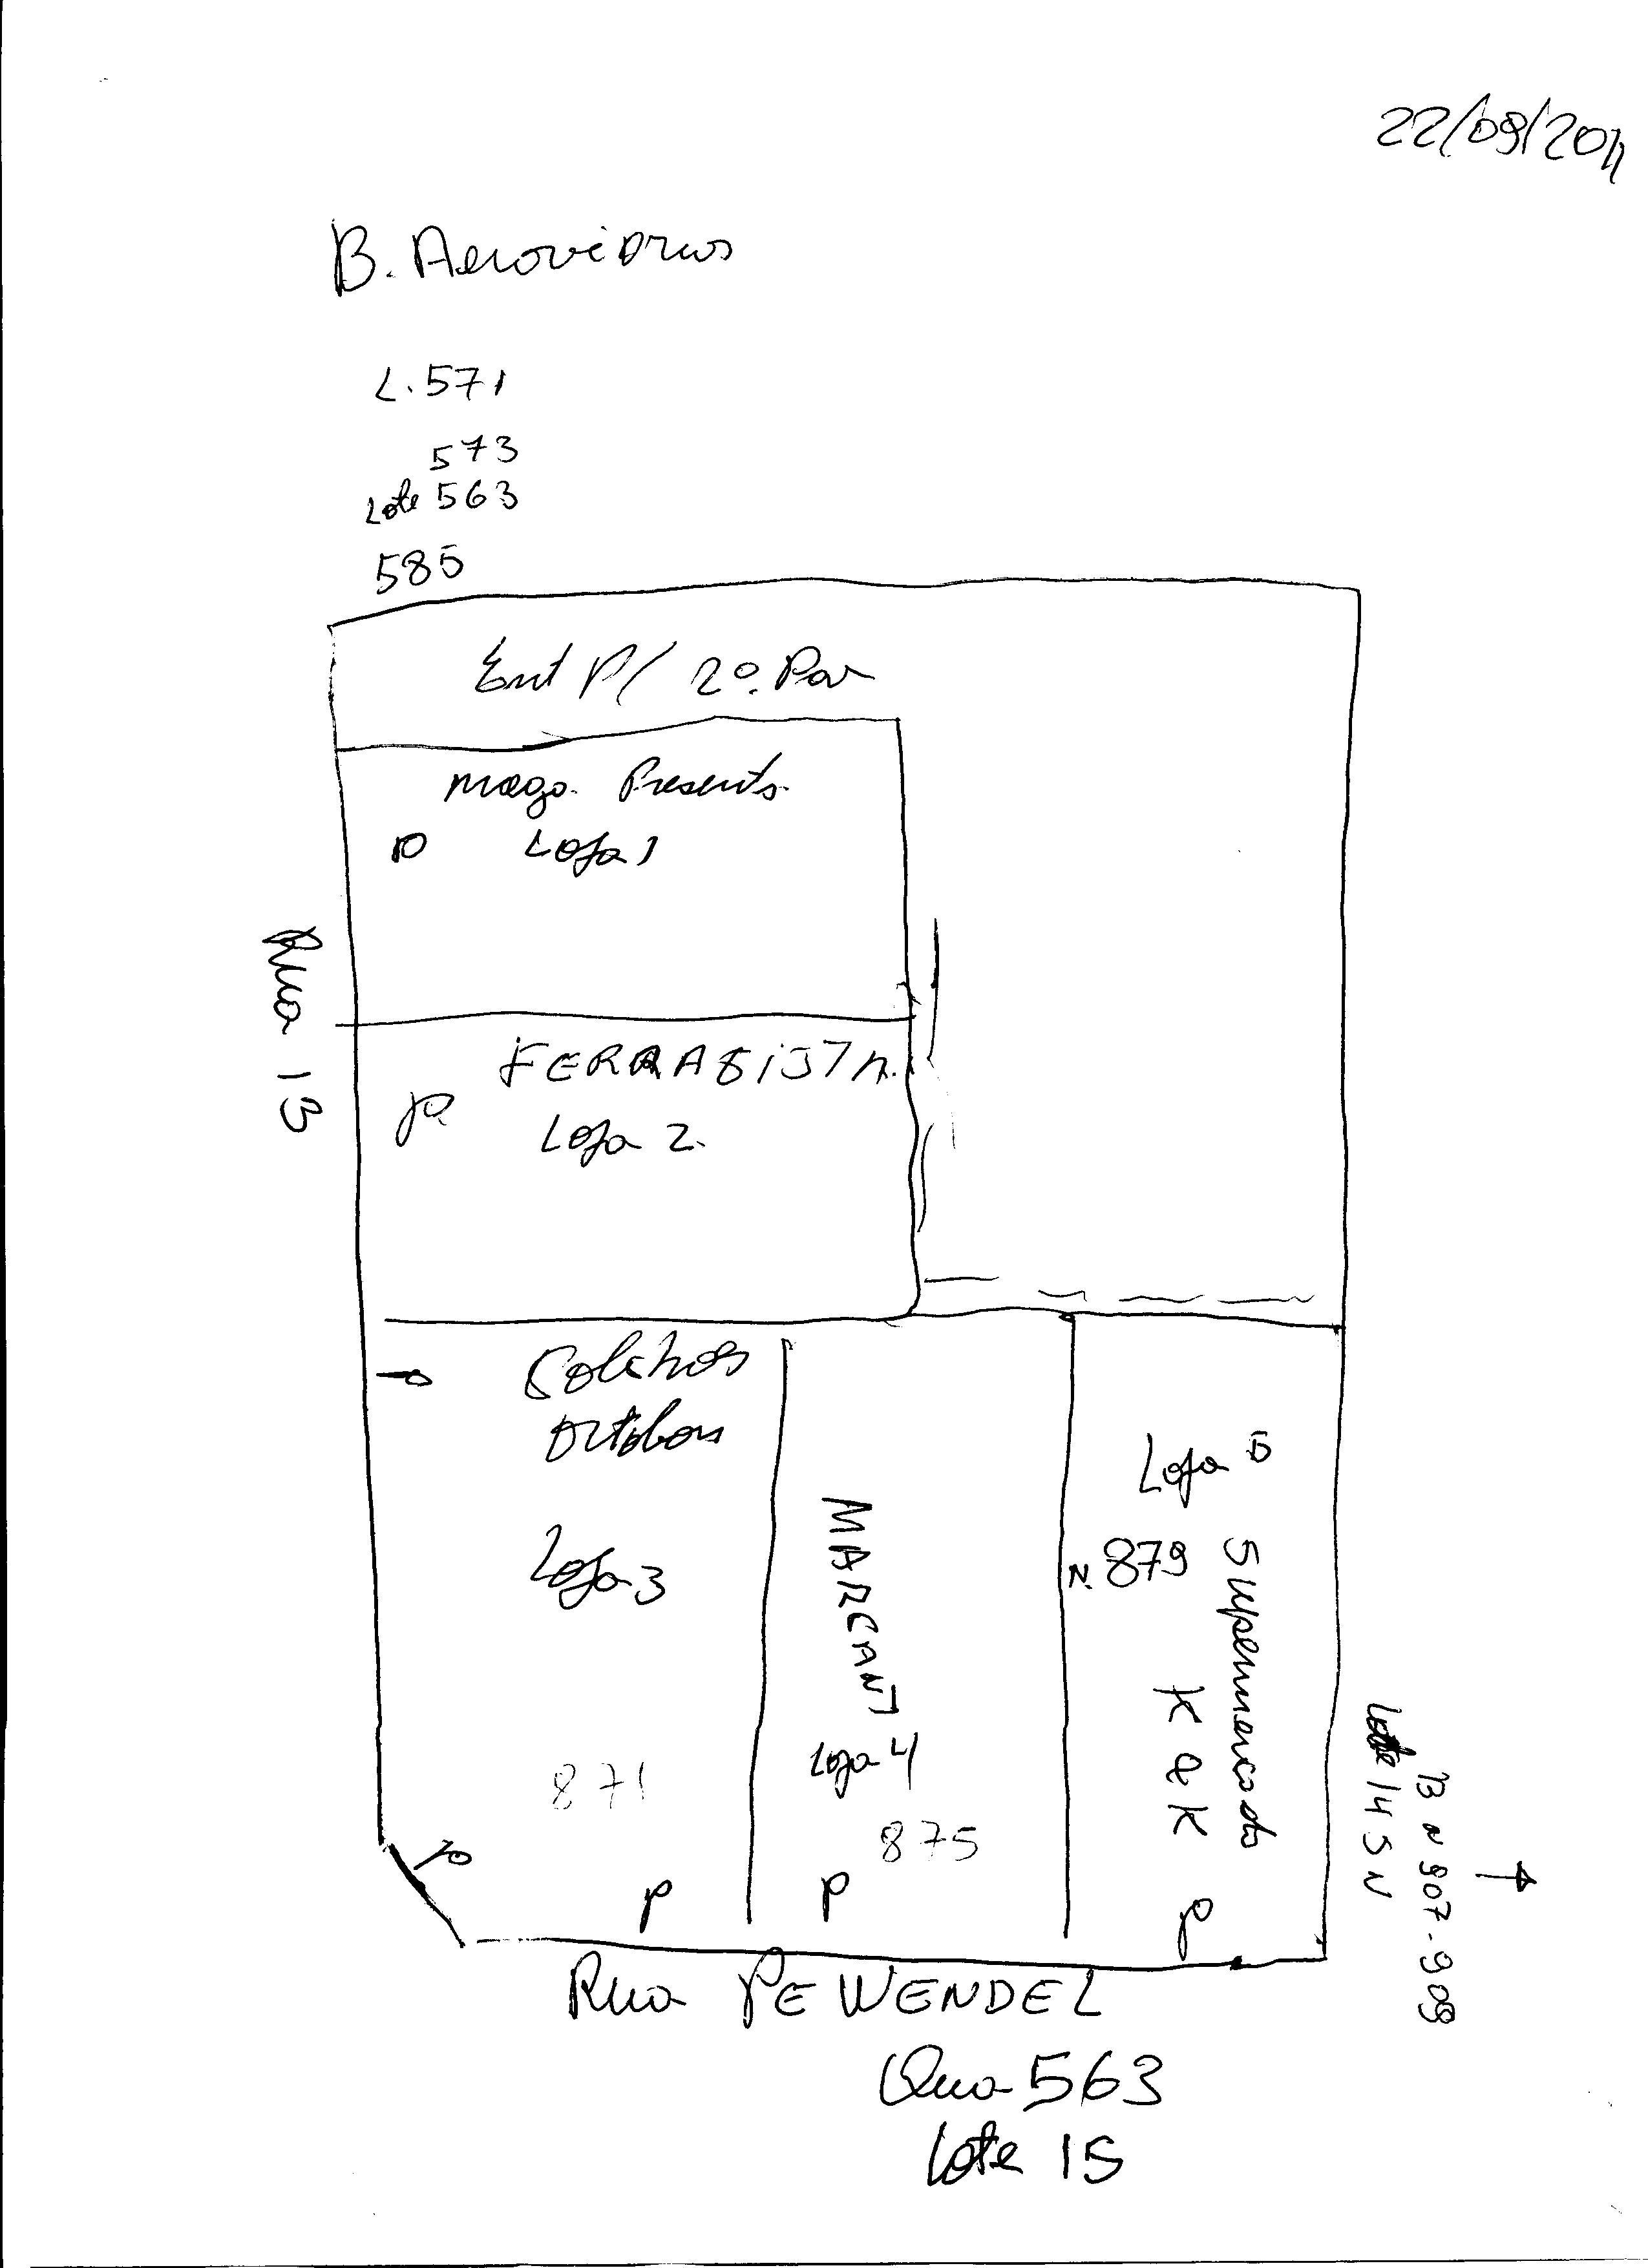 22/09/2011
B. Aeroviários
L. 571
573
Lote 563
585
Ent P/ 2º. Pav
Mago. Presents.
Loja 1
Rua 13
FERRA
Loja 2.
Colchos
Ortobom
Loja 3
871
MARCANT
Loja 4
875
Loja 5
N. 879
Supermercado
K & K
Lote 14 S N
B N 907-909
Rua PE WENDEL
Qua 563
Lote 15